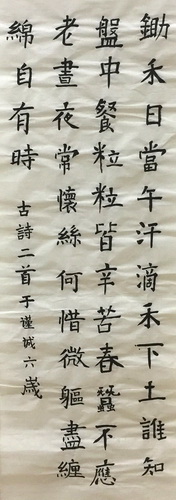 鋤禾日當午汗滴禾下土誰知
盤中餐粒粒皆辛苦春蠶不應
老晝夜常懷絲何惜微軀盡纏
綿自有時
古詩二首于謹誠六歲